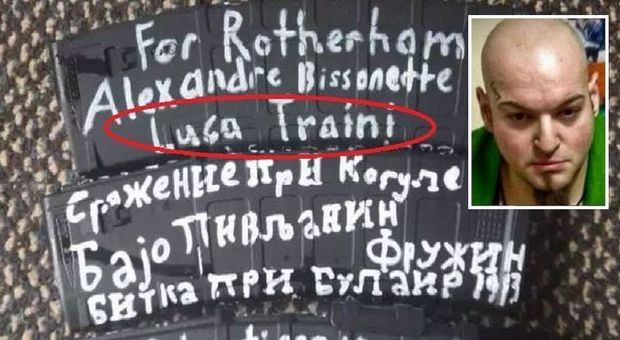 For Rotherham
Alexandre Bissonette
Luca Traini
Сражение при Кагуле
Бајо Пивљанин
Фружин
Битка при Булаир 1913